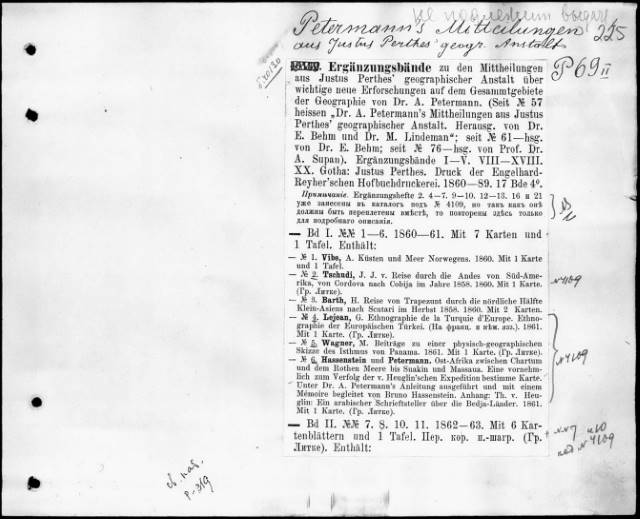 не подлежит выдаче
Petermann's Mitteilungen 225
aus Justus Perthes' geogr. Anstalt
P 69 II
Ergänzungsbände zu den Mittheilungen
aus Justus Perthes' geographischer Anstalt über
wichtige neue Erforschungen auf dem Gesammtgebiete
der Geographie von Dr. A. Petermann. (Seit № 57
heissen „Dr. A. Petermann's Mittheilungen aus Justus
Perthes' geographischer Anstalt. Herausg. von Dr.
E. Behm und Dr. M. Lindeman“; seit № 61—hsg.
von Dr. E. Behm; seit № 76—hsg. von Prof. Dr.
A. Supan). Ergänzungsbände I—V. VIII—XVIII.
XX. Gotha: Justus Perthes. Druck der Engelhard-
Reyher'schen Hofbuchdruckerei. 1860—89. 17 Bde 4°.
Примѣчаніе. Ergänzungshefte 2. 4—7. 9—10. 12—13. 16 и 21
уже занесены въ каталогъ подъ № 4109, но такъ какъ онѣ
должны быть переплетены вмѣстѣ, то повторены здѣсь только
для подробнаго описанія.
— Bd I. №№ 1—6. 1860—61. Mit 7 Karten und
1 Tafel. Enthält:
— № 1. Vibe, A. Küsten und Meer Norwegens. 1860. Mit 1 Karte
und 1 Tafel.
— № 2. Tschudi, J. J. v. Reise durch die Andes von Süd-Ame-
rika, von Cordova nach Cobija im Jahre 1858. 1860. Mit 1 Karte.
(Гр. Литке).
№ 4109
— № 3. Barth, H. Reise von Trapezunt durch die nördliche Hälfte
Klein-Asiens nach Scutari im Herbst 1858. 1860. Mit 2 Karten.
— № 4. Lejean, G. Ethnographie de la Turquie d'Europe. Ethno-
graphie der Europäischen Türkei. (На франц. и нѣм. яз.). 1861.
Mit 1 Karte. (Гр. Литке).
— № 5. Wagner, M. Beiträge zu einer physisch-geographischen
Skizze des Isthmus von Panama. 1861. Mit 1 Karte. (Гр. Литке).
№ 4109
— № 6. Hassenstein und Petermann. Ost-Afrika zwischen Chartum
und dem Rothen Meere bis Suakin und Massaua. Eine vornehm-
lich zum Verfolg der v. Heuglin'schen Expedition bestimme Karte.
Unter Dr. A. Petermann's Anleitung ausgeführt und mit einem
Mémoire begleitet von Bruno Hassenstein. Anhang: Th. v. Heu-
glin: Ein arabischer Schriftsteller über die Bedja-Länder. 1861.
Mit 1 Karte. (Гр. Литке).
— Bd II. №№ 7. 8. 10. 11. 1862—63. Mit 6 Kar-
tenblättern und 1 Tafel. Пер. кор. н.-шагр. (Гр.
Литке). Enthält:
№ 7 и 10
под № 4109
P-319